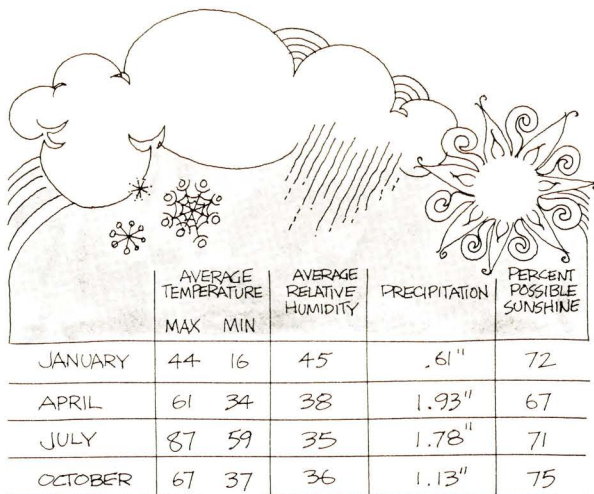 AVERAGE TEMPERATURE AVERAGE RELATIVE HUMIDITY PRECIPITATION PERCENT POSSIBLE SUNSHINE
MAX MIN
JANUARY 44 16 45 .61" 72
APRIL 61 34 38 1.93" 67
JULY 87 59 35 1.78" 71
OCTOBER 67 37 36 1.13" 75